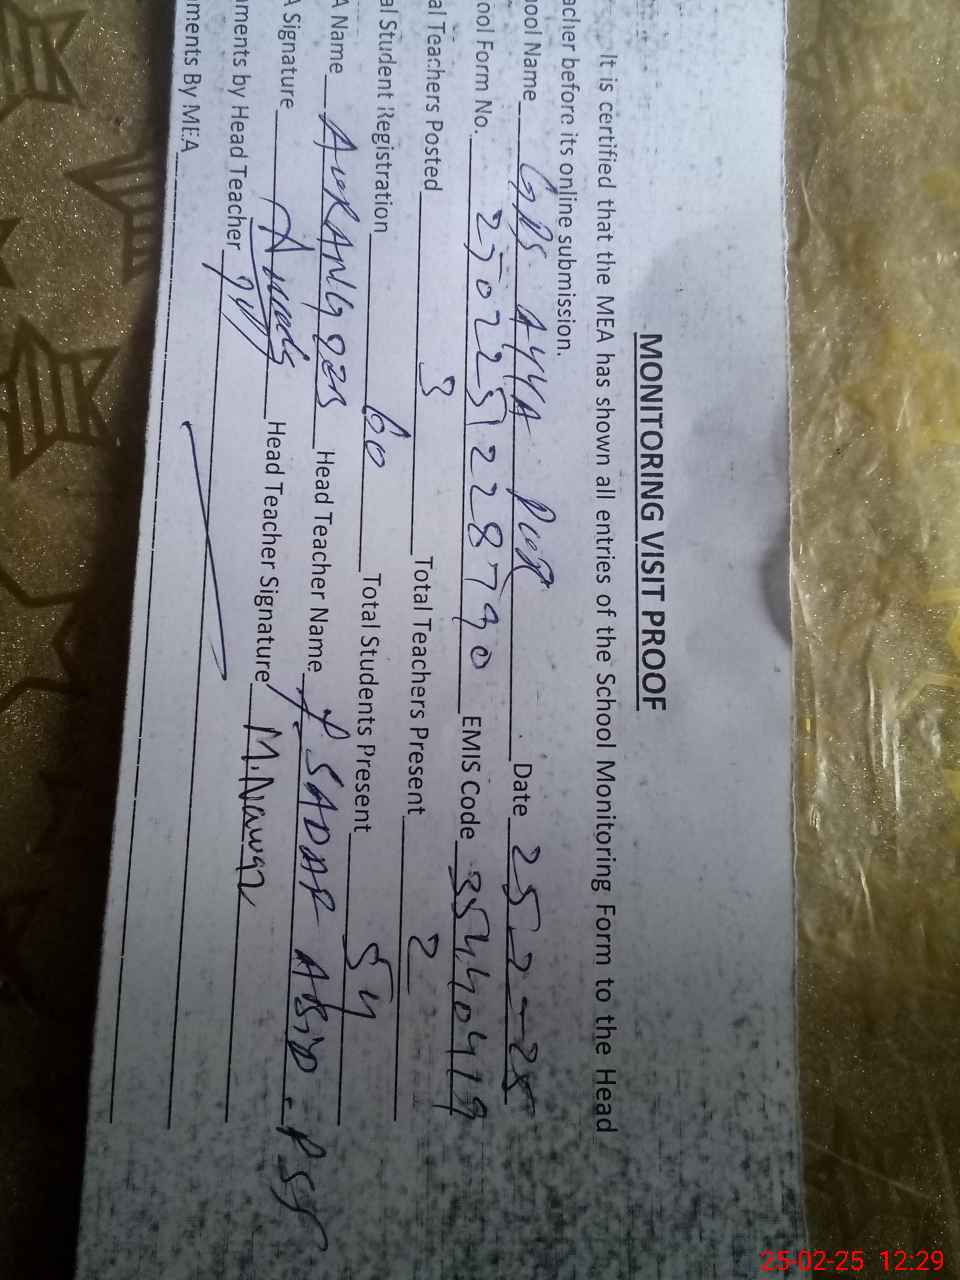 MONITORING VISIT PROOF
It is certified that the MEA has shown all entries of the School Monitoring Form to the Head
acher before its online submission.
ool Name GPS AYYA PUR Date 25-2-25
ool Form No. 2502251228790 EMIS Code 35440419
al Teachers Posted 3 Total Teachers Present 2
al Student Registration 60 Total Students Present 54
A Name AURANGZEB Head Teacher Name SADAR ABID - PST
A Signature Head Teacher Signature M. Nawaz
ments by Head Teacher
ments By MEA
25-02-25 12:29